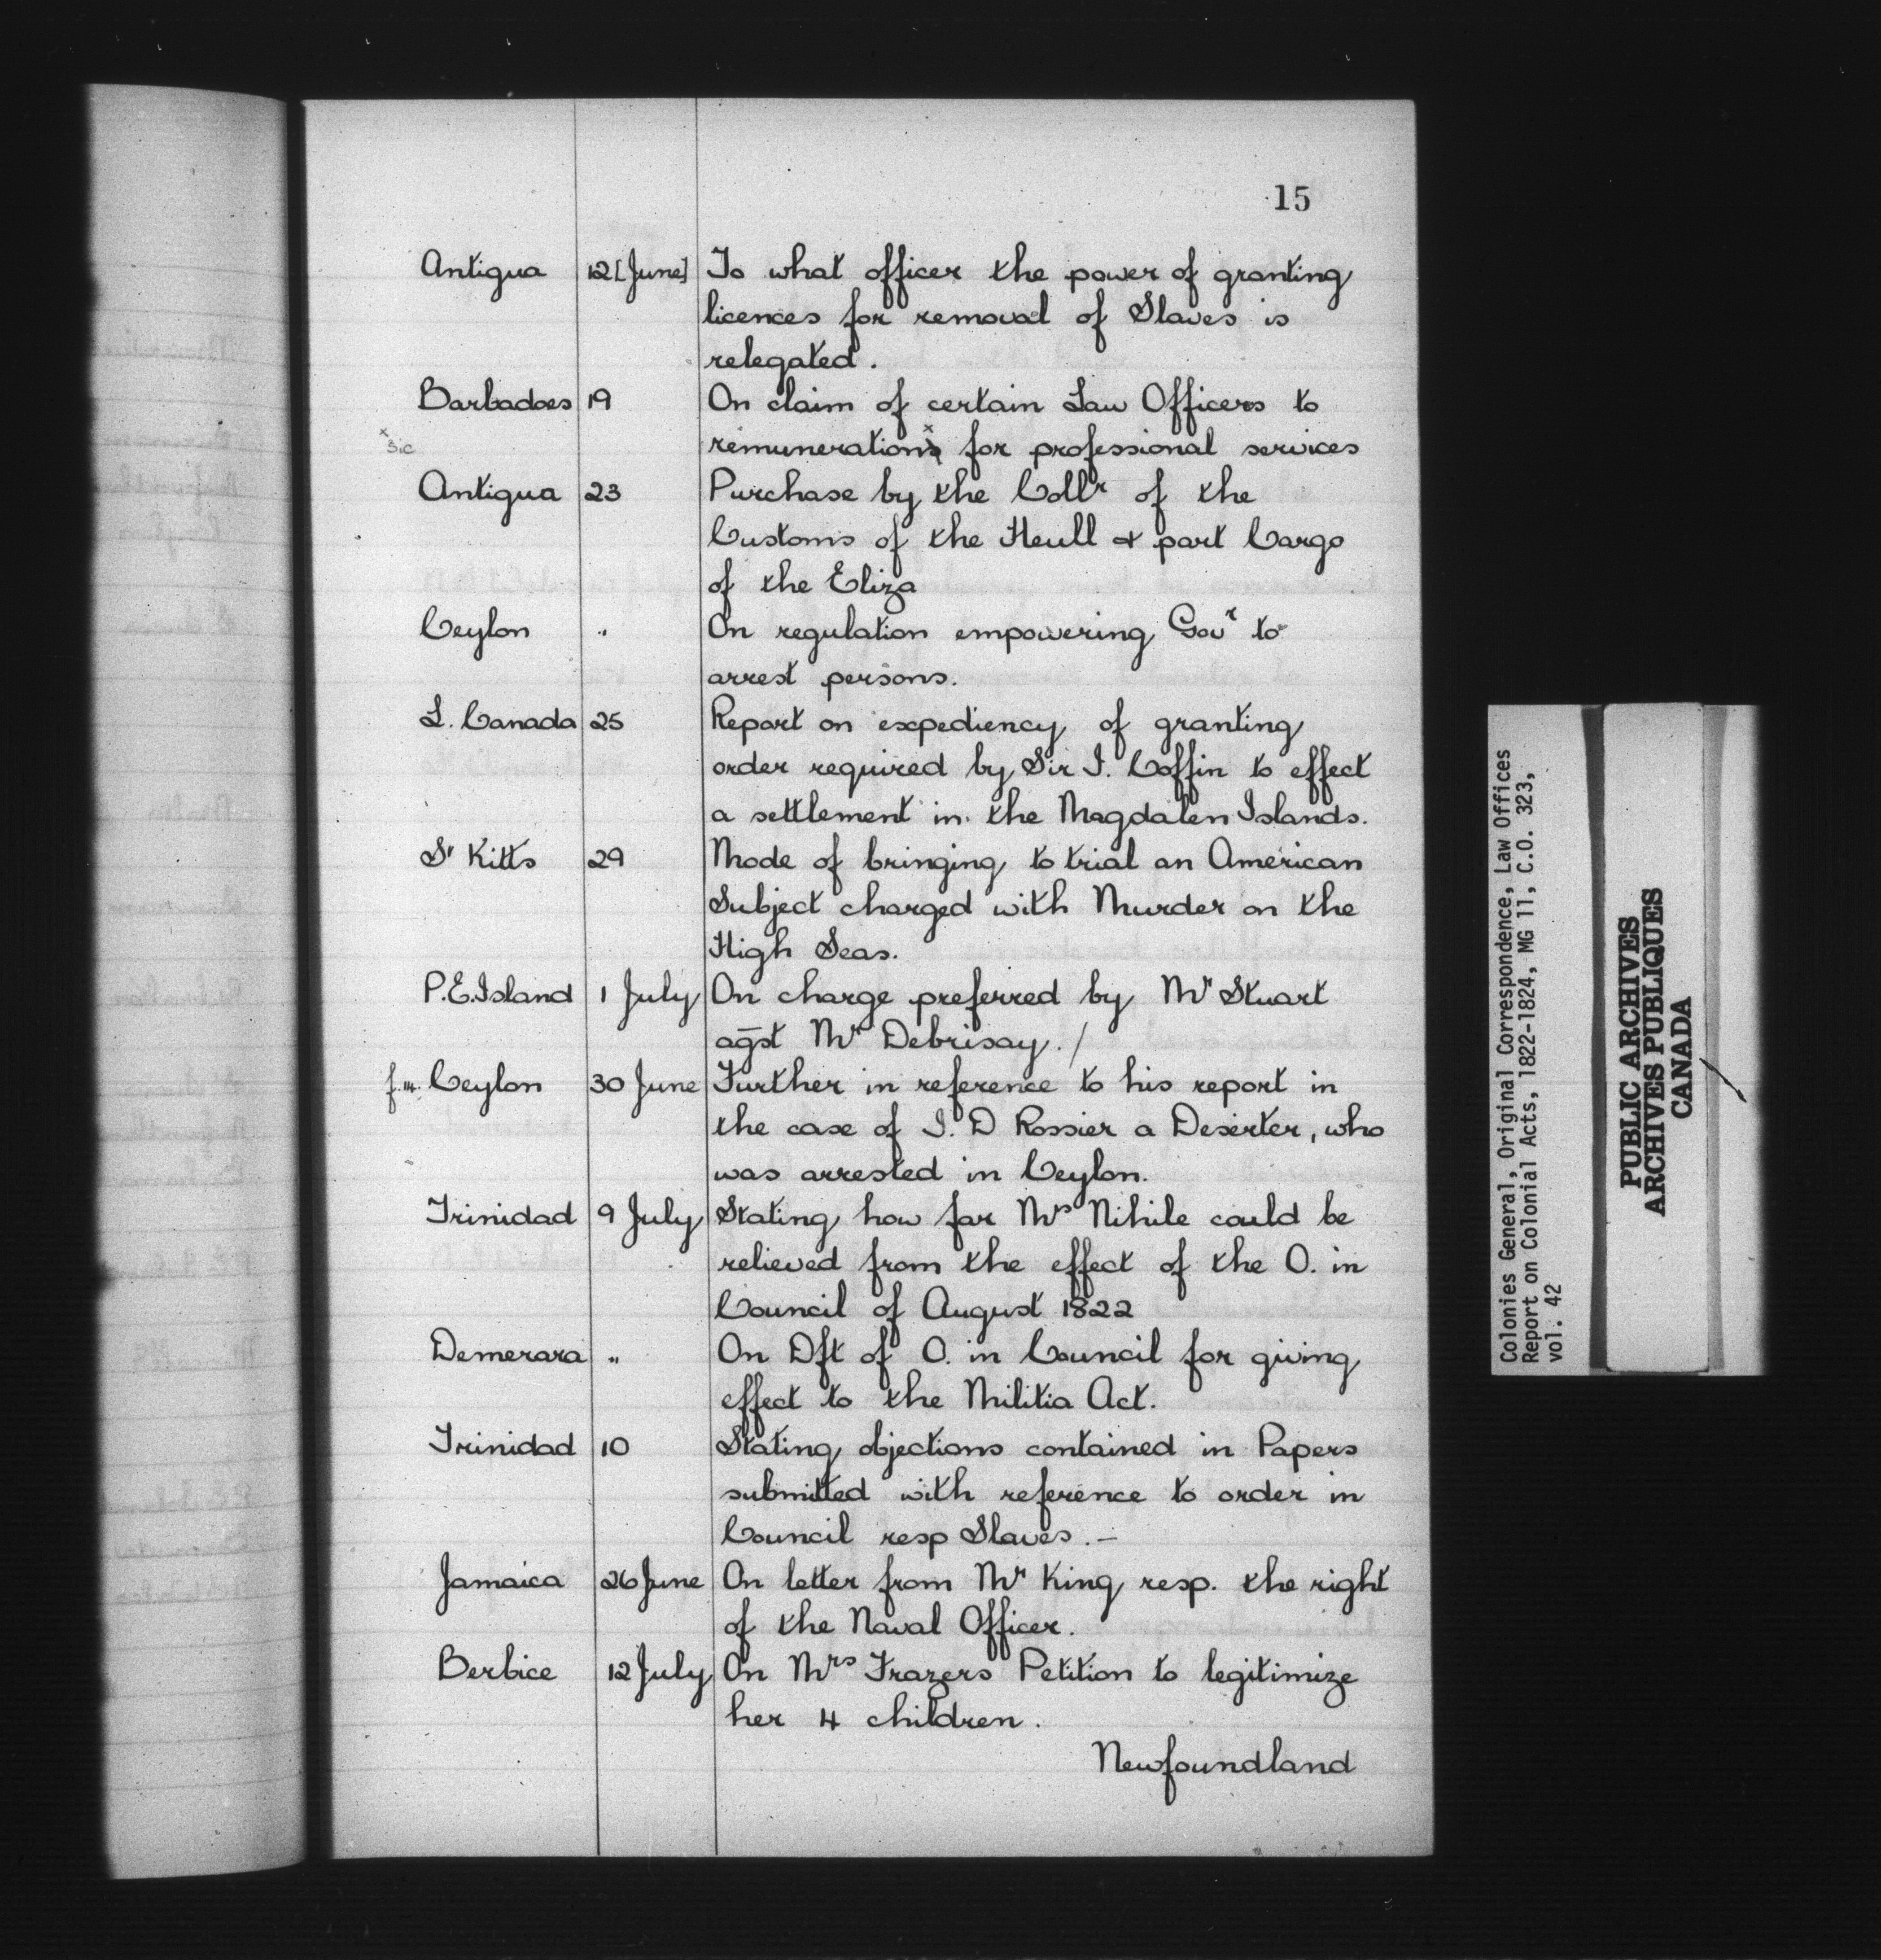 15
Antigua 12 [June] To what officer the power of granting
licences for removal of Slaves is
relegated.
Barbadoes 19 On claim of certain Law Officers to
x sic remunerations x for professional services
Antigua 23 Purchase by the Collr of the
Customs of the Heull & part Cargo
of the Eliza
Ceylon " On regulation empowering Govr to
arrest persons.
L. Canada 25 Report on expediency of granting
order required by Sir I. Coffin to effect
a settlement in the Magdalen Islands.
St Kitts 29 Mode of bringing to trial an American
Subject charged with Murder on the
High Seas.
P.E.Island 1 July On charge preferred by Mr Stuart
agst Mr Debrisay. /
f.14. Ceylon 30 June Further in reference to his report in
the case of I. D Rossier a Deserter, who
was arrested in Ceylon.
Trinidad 9 July Stating how far Mrs Nihile could be
relieved from the effect of the O. in
Council of August 1822
Demerara " On Dft of O. in Council for giving
effect to the Militia Act.
Trinidad 10 Stating objections contained in Papers
submitted with reference to order in
Council resp Slaves. –
Jamaica 26 June On letter from Mr King resp. the right
of the Naval Officer.
Berbice 12 July On Mrs Frazers Petition to legitimize
her 4 children.
Newfoundland
Colonies General, Original Correspondence, Law Offices
Report on Colonial Acts, 1822-1824, MG 11, C.O. 323,
vol. 42
PUBLIC ARCHIVES
ARCHIVES PUBLIQUES
CANADA